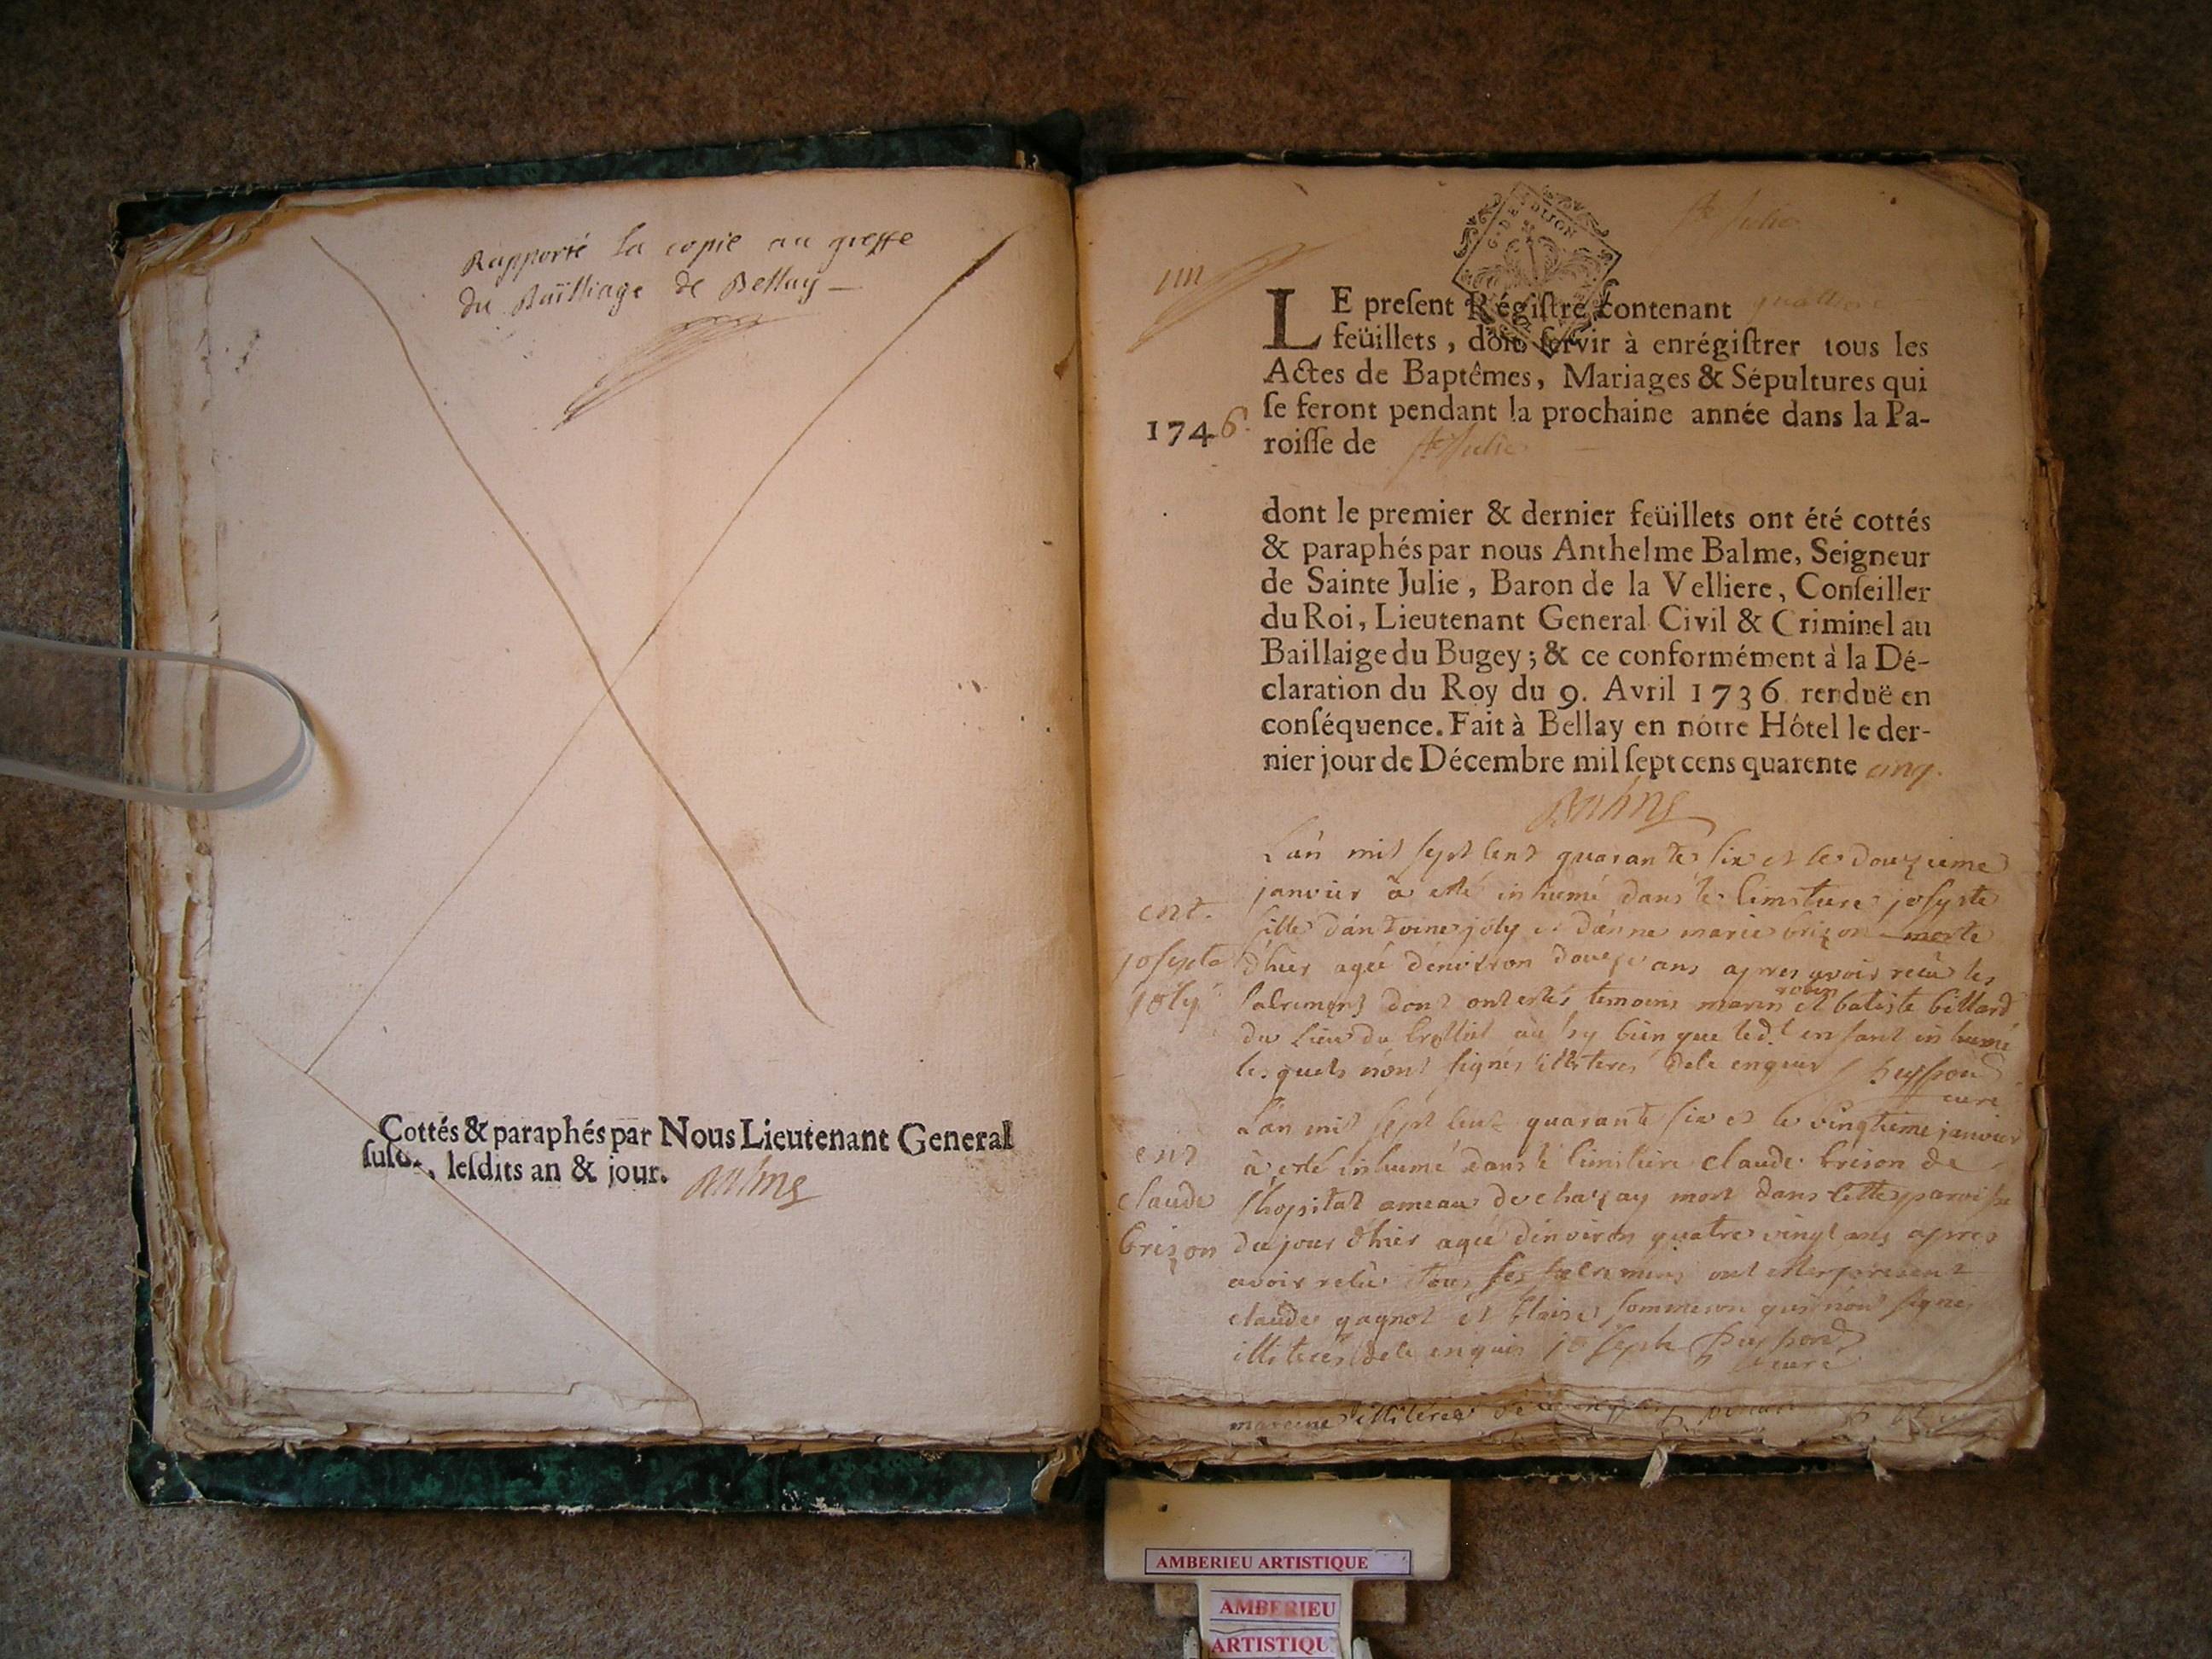 Rapporté la copie au greffe
du Bailliage de Bellay
Cottés & paraphés par Nous Lieutenant General
susd., lesdits an & jour. Balme
G. DE DIJON
Ste Julie
IIII
LE present Régistre contenant quattre
feüillets, doit servir à enrégistrer tous les
Actes de Baptêmes, Mariages & Sépultures qui
se feront pendant la prochaine année dans la Pa-
1746.
roisse de Ste Julie
dont le premier & dernier feüillets ont été cottés
& paraphés par nous Anthelme Balme, Seigneur
de Sainte Julie, Baron de la Velliere, Conseiller
du Roi, Lieutenant General Civil & Criminel au
Baillaige du Bugey; & ce conformément à la Dé-
claration du Roy du 9. Avril 1736 renduë en
conséquence. Fait à Bellay en nôtre Hôtel le der-
nier jour de Décembre mil sept cens quarente cinq.
Balme
L'an mil sept cent quarante six et le douzieme
janvier a esté inhumé dans le cimitiere josepte
ent.
josepte
joly
fille d'antoine joly et d'anne marie brizon morte
d'hier agée d'environ douze ans apres avoir reçu les
sacremens dont ont estés temoins marin robin et batiste billard
du lieu du aussy bien que led.t enfant inhumé
lesquels n'ont signés illiteres de ce enquis
curé
L'an mil sept cent quarante six et le vingtieme janvier
ent
claude
brizon
à esté inhumé dans le cimitiere claude brison de
l'hopital ameau de chazay mort dans cette paroisse
du jour d'hier agée d'environ quatre vingt ans apres
avoir reçu tous ses sacremens ont esté present
claude gagnot et blaise sommeson qui n'ont signes
illiteres de ce enquis joseph
curé
maraine illiteres de ce enquis
AMBERIEU ARTISTIQUE
AMBERIEU
ARTISTIQU